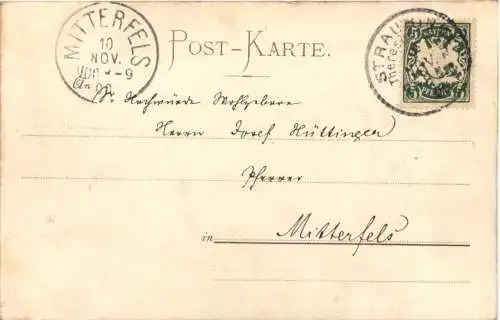 MITTERFELS
10
NOV.
POST-KARTE.
STRAUBING
BAYERN
5 5
PFENNIG
An Sr Hochwürde Wohlgeboren
Herrn Josef Hüttinger
Pfarrer
in Mitterfels